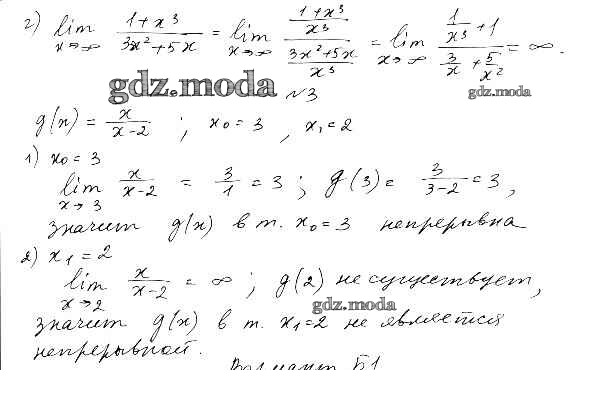 2) lim x→∞ (1+x³)/(3x²+5x) = lim x→∞ ((1+x³)/x³)/((3x²+5x)/x³) = lim x→∞ (1/x³+1)/(3/x+5/x²) = ∞.
gdz.moda
gdz.moda
№3
g(x) = x/(x-2) ; x₀=3 , x₁=2
1) x₀=3
lim x→3 x/(x-2) = 3/1 = 3 ; g(3) = 3/(3-2) = 3 ,
значит g(x) в т. x₀=3 непрерывна
2) x₁=2
lim x→2 x/(x-2) = ∞ ; g(2) не существует,
gdz.moda
значит g(x) в т. x₁=2 не является
непрерывной.
Вариант Б1